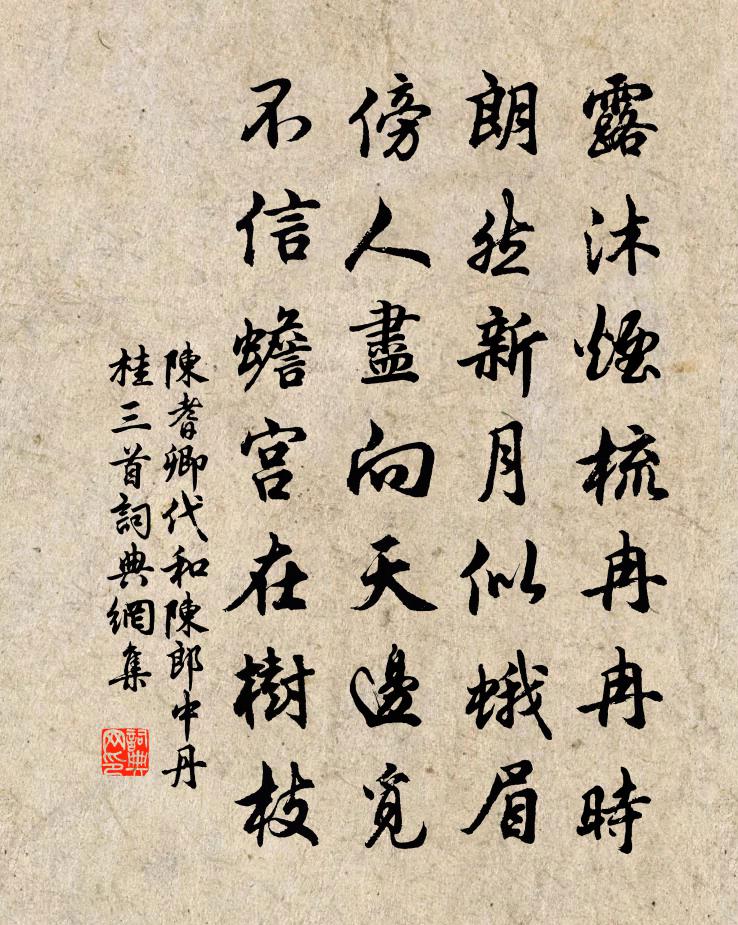 露沐煙梳冉冉時
朗然新月似蛾眉
傍人盡向天邊覓
不信蟾宮在樹枝
陳耆卿代和陳郎中丹
桂三首詞典網集
詞典
网印